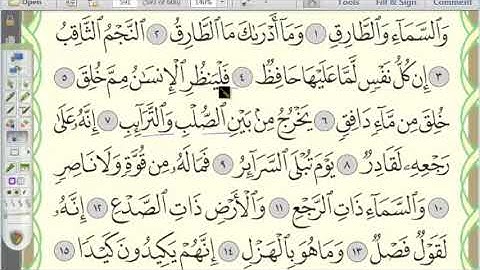 Open 591 (593 of 606) 140% Tools Fill & Sign Comment
وَٱلسَّمَآءِ وَٱلطَّارِقِ ١ وَمَآ أَدْرَىٰكَ مَا ٱلطَّارِقُ ٢ ٱلنَّجْمُ ٱلثَّاقِبُ
٣ إِن كُلُّ نَفْسٍ لَّمَّا عَلَيْهَا حَافِظٌ ٤ فَلْيَنظُرِ ٱلْإِنسَـٰنُ مِمَّ خُلِقَ ٥
خُلِقَ مِن مَّآءٍ دَافِقٍ ٦ يَخْرُجُ مِنۢ بَيْنِ ٱلصُّلْبِ وَٱلتَّرَآئِبِ ٧ إِنَّهُۥ عَلَىٰ
رَجْعِهِۦ لَقَادِرٌ ٨ يَوْمَ تُبْلَى ٱلسَّرَآئِرُ ٩ فَمَا لَهُۥ مِن قُوَّةٍ وَلَا نَاصِرٍ
١٠ وَٱلسَّمَآءِ ذَاتِ ٱلرَّجْعِ ١١ وَٱلْأَرْضِ ذَاتِ ٱلصَّدْعِ ١٢ إِنَّهُۥ
لَقَوْلٌ فَصْلٌ ١٣ وَمَا هُوَ بِٱلْهَزْلِ ١٤ إِنَّهُمْ يَكِيدُونَ كَيْدًا ١٥